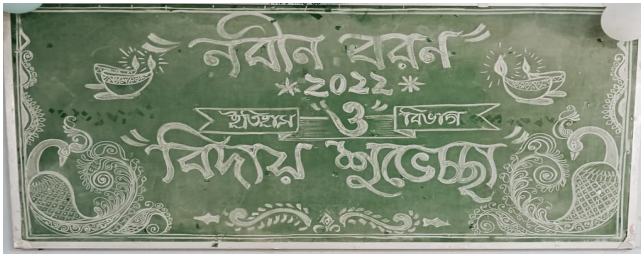 "নবীন বরণ"
*2022*
ইতিহাস "ও" বিভাগ
"বিদায় শুভেচ্ছা"